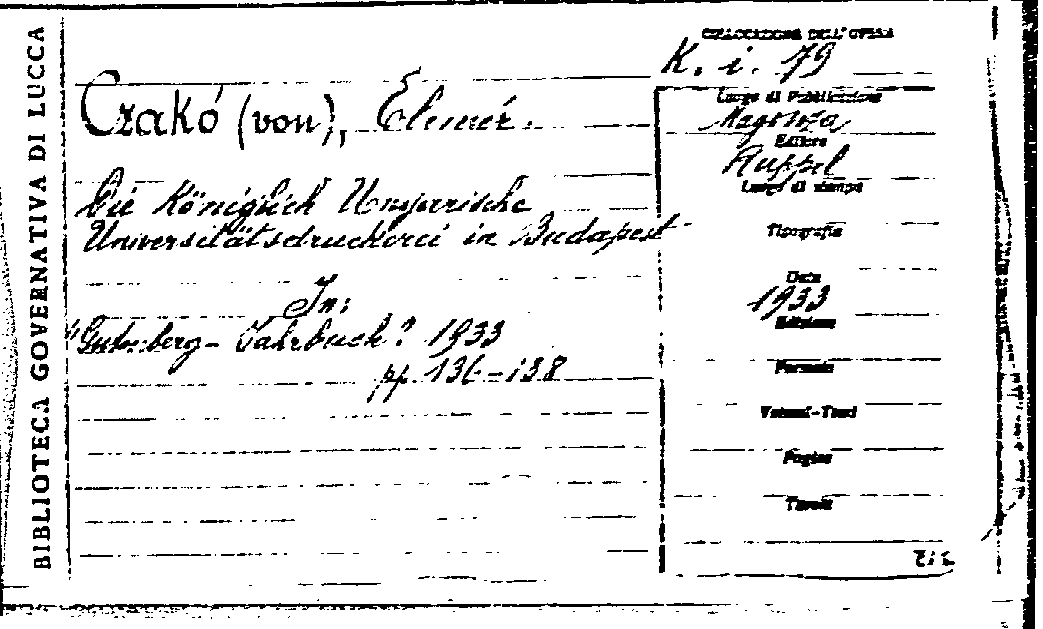 BIBLIOTECA GOVERNATIVA DI LUCCA
COLLOCAZIONE DELL'OPERA
K. i. 79
Czakó (von), Elemér.
Die Königlich Ungarische
Universitätsdruckerei in Budapest
In:
"Gutenberg-Jahrbuch" 1933
pp. 136-138
Luogo di Pubblicazione
Magonza
Editore
Ruppel
Luogo di stampa
Tipografia
Data
1933
Edizione
Formato
Volumi-Tomi
Pagine
Tavole